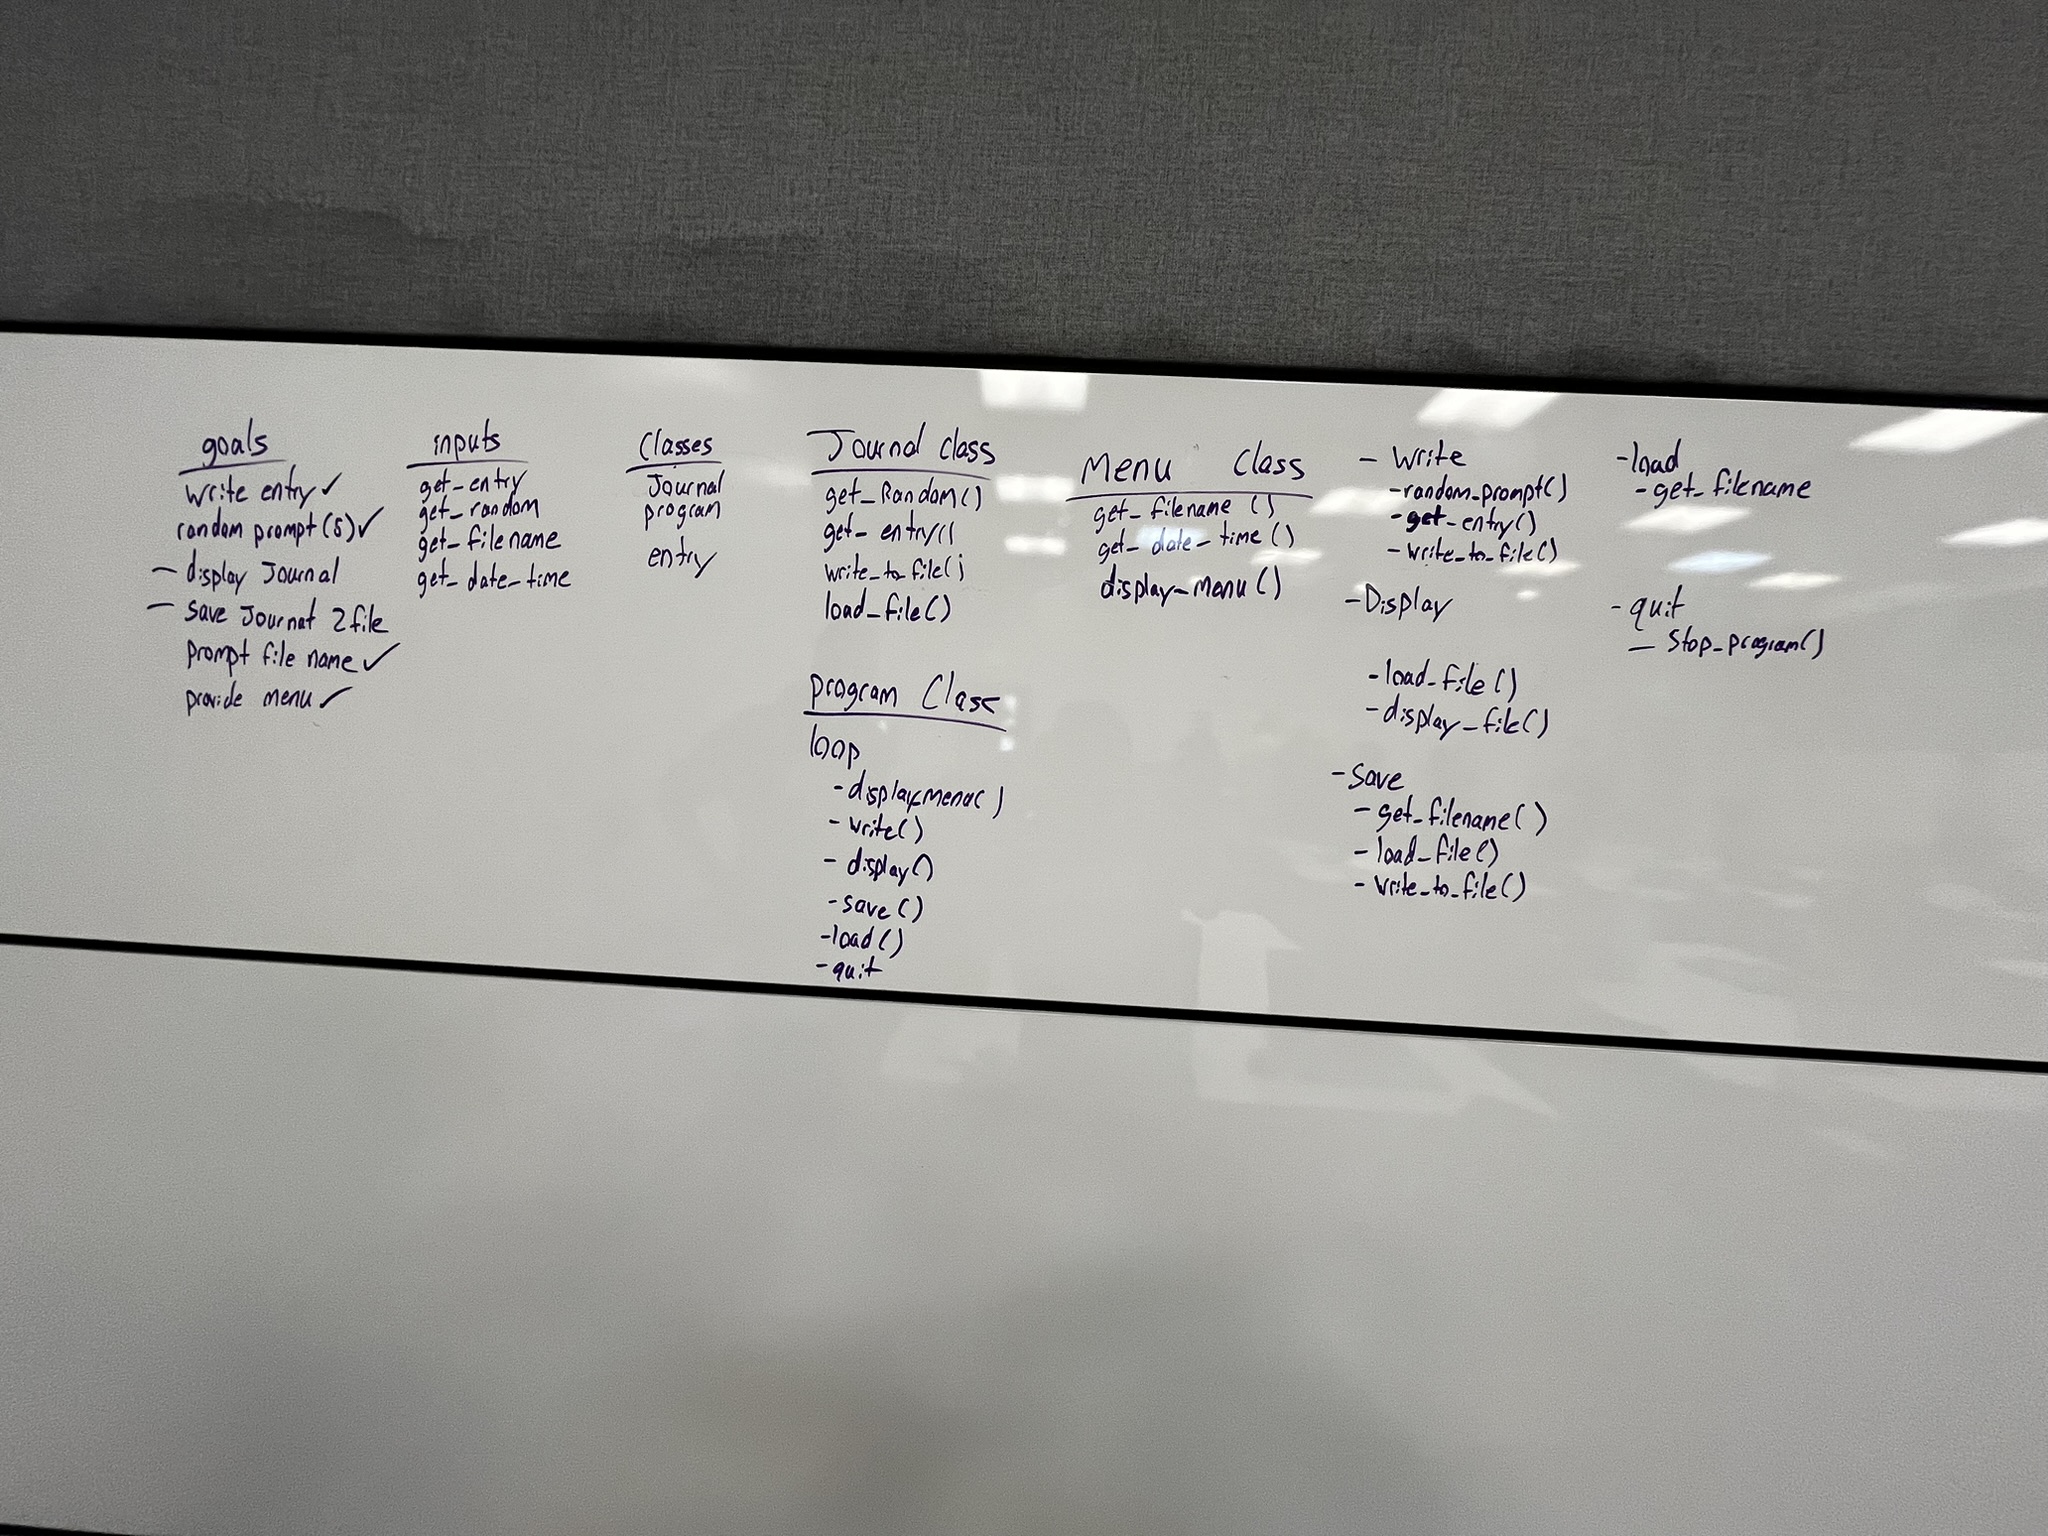 goals
write entry ✓
random prompt (5) ✓
- display Journal
- save Journal 2 file
prompt file name ✓
provide menu ✓
inputs
get_entry
get_random
get_filename
get_date_time
Classes
Journal
program
entry
Journal class
get_Random()
get_entry()
write_to_file()
load_file()
program Class
loop
- display_menu()
- write()
- display()
- save()
- load()
- quit
Menu Class
get_filename()
get_date_time()
display_menu()
- Write
- random_prompt()
- get_entry()
- write_to_file()
- Display
- load_file()
- display_file()
- Save
- get_filename()
- load_file()
- write_to_file()
- load
- get_filename
- quit
- Stop_program()